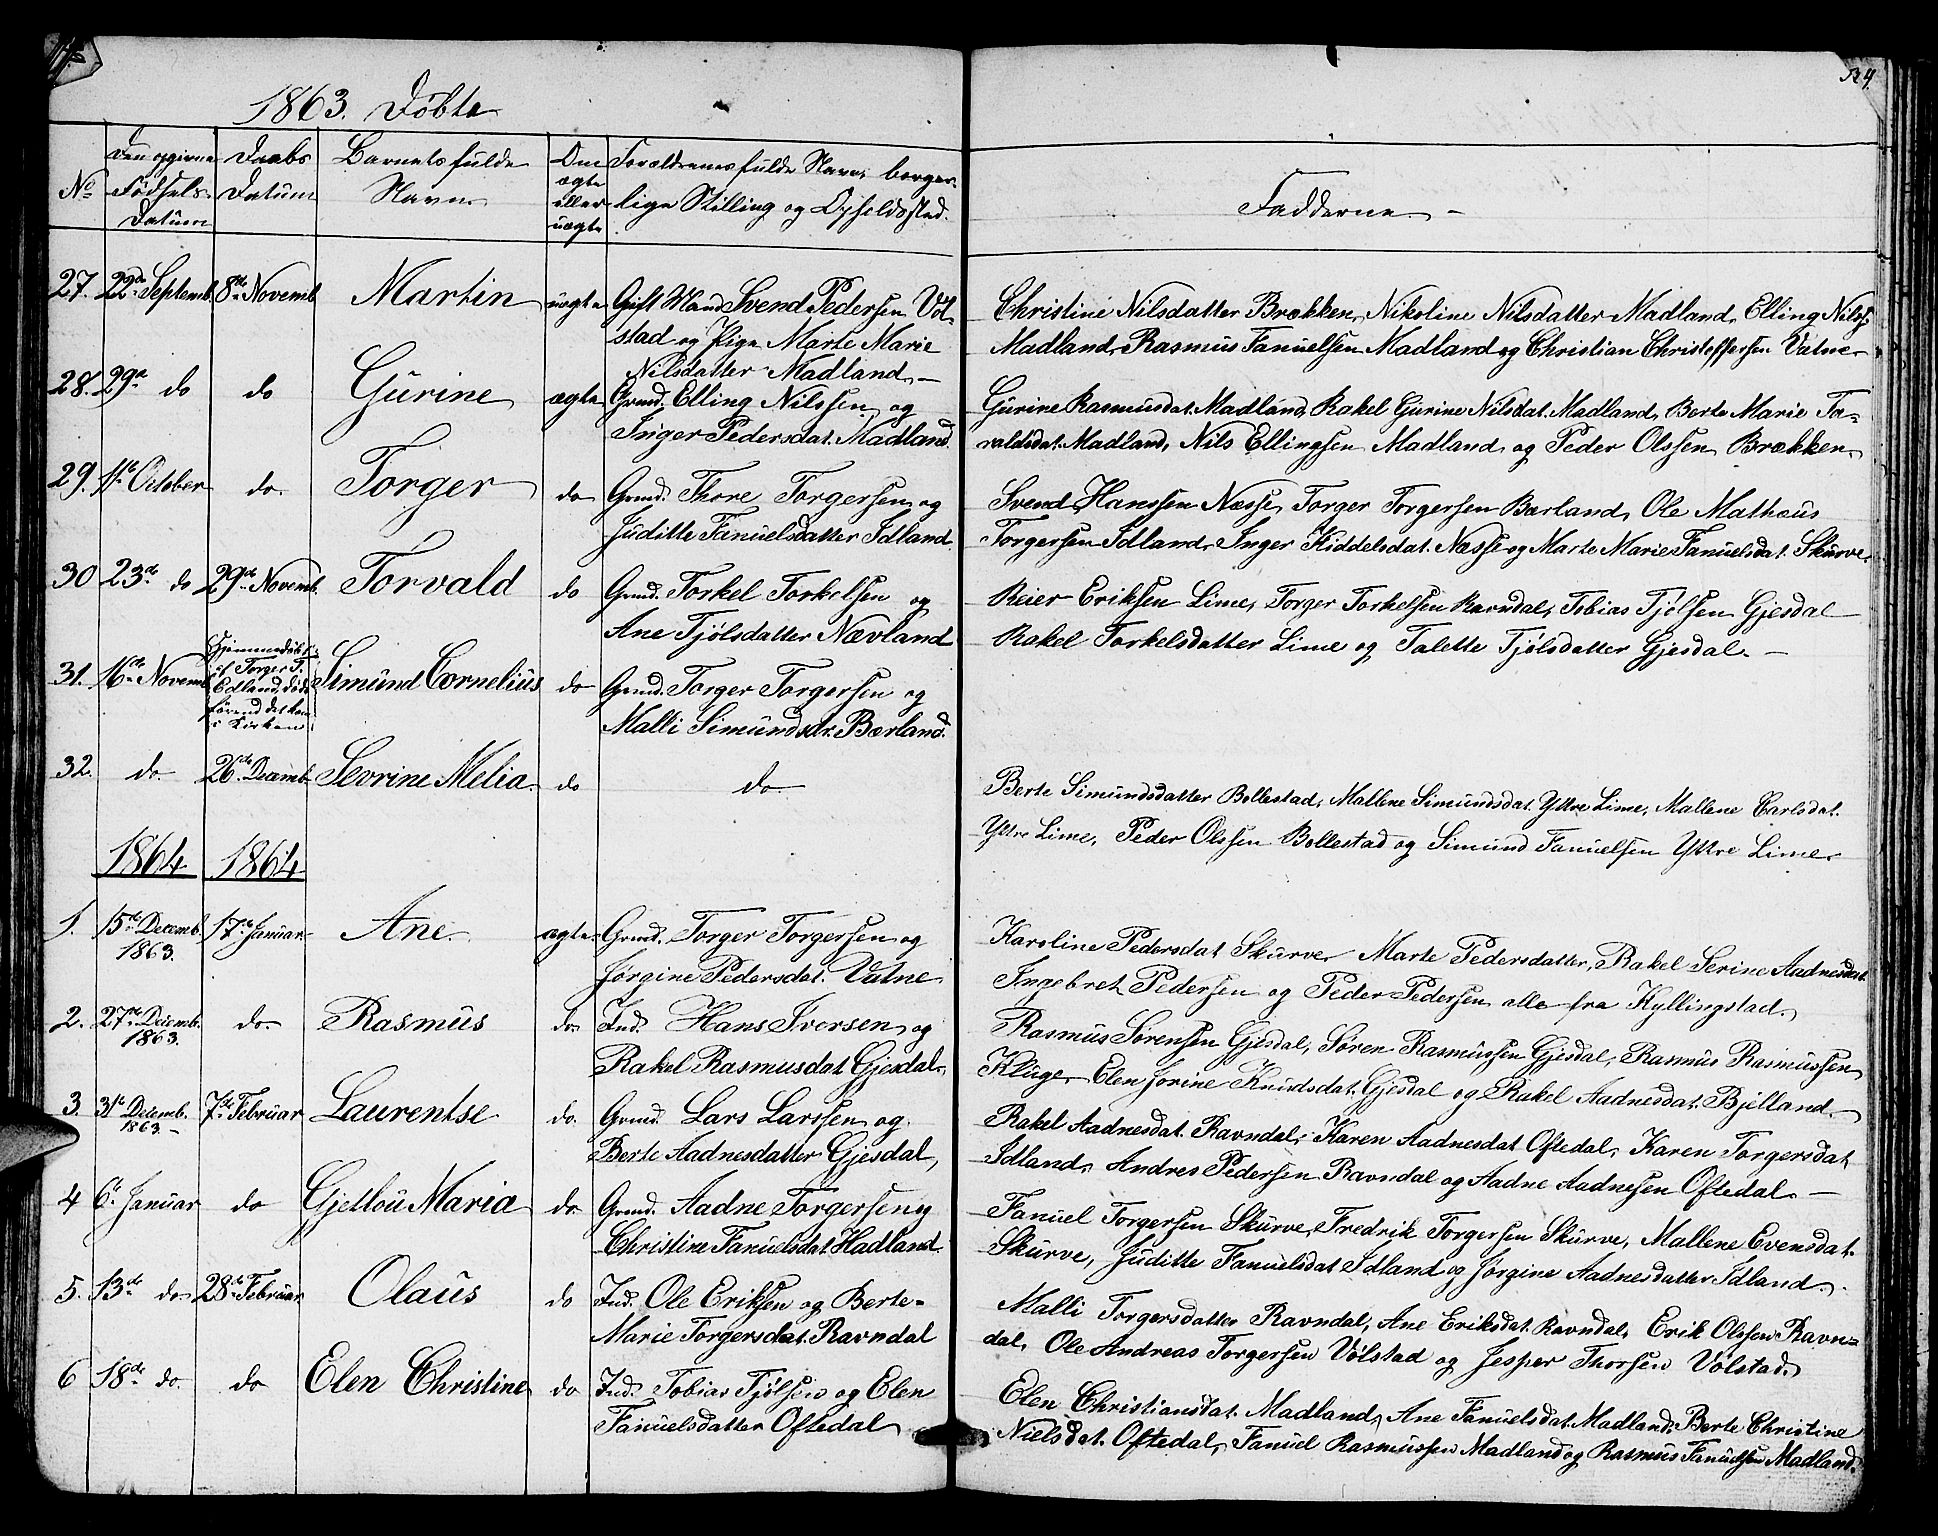 1863. Døbte
No
Den opgivne Fødsels-Datum
Daabs Datum
Barnets fulde Navn
Om ægte eller uægte
Forældrenes fulde Navn, borger-
lige Stilling og Opholdssted.
Fadderne
27. 22de Septemb. 8de Novemb Martin uægte Gift Mand Svend Pedersen Vol-
stad og Pige Marte Marie
Nilsdatter Madland
Christine Nilsdatter Brækken, Nikoline Nilsdatter Madland, Elling Nils.
Madland, Rasmus Fanuelsen Madland og Christian Christoffersen Vatne
28. 29de do do Gurine ægte Grmd. Elling Nilssen og
Inger Pedersdat. Madland
Gurine Rasmusdat. Madland, Rakel Gurine Nilsdat. Madland, Berte Marie To-
valdsdat. Madland, Nils Ellingsen Madland og Peder Olssen Brækken
29. 1ste October do. Torger do Grmd. Thore Torgersen og
Juditte Fanuelsdatter Idland
Svend Hanssen Næsse, Torger Torgersen Bærland, Ole Matheus
Torgersen Idland, Inger Kiddelsdat. Næsse og Marte Marie Fanuelsdat. Skurve
30 23de do 29de Novemb. Torvald do Grmd. Torkel Torkelsen og
Ane Tjølsdatter Nævland
Reier Eriksen Lime, Torger Torkelsen Ravndal, Tobias Tjølsen Gjesdal
Rakel Torkelsdatter Lime og Talette Tjølsdatter Gjesdal.
31. 16de Novemb Hjemmedøbt
af Torger T.
Edland, døde
førend det kom
i Kirken
Simund Cornelius do Grmd. Torger Torgersen og
Malli Simundsdr. Bærland.
32. do. 26de Decemb. Sevrine Melia do do
Berte Simundsdatter Bollestad, Mallene Simundsdat. Yttre Lime, Mallene Carlsdat.
Yttre Lime, Peder Olssen Bollestad og Simund Fanuelsen Yttre Lime
1864 1864
1. 15de Decemb. 1863. 17de Januar Ane ægte Grmd. Torger Torgersen og
Jørgine Pedersdat. Vatne
Karoline Pedersdat Skurve Marte Pedersdatter, Rakel Serine Aadnesdat.
Ingebret Pedersen og Peder Pedersen alle fra Kyllingstad.
2. 27de Decemb. 1863. do Rasmus do Ind. Hans Iversen og
Rakel Rasmusdat. Gjesdal
Rasmus Sørensen Gjesdal, Søren Rasmussen Gjesdal, Rasmus Rasmussen
Kluge, Elen Jorine Knudsdat. Gjesdal og Rakel Aadnesdat. Bjelland.
3. 31te Decemb. 1863. 7de Februar Laurentse do. Grmd. Lars Larssen og
Berte Aadnesdatter Gjesdal,
Rakel Aadnesdat. Ravndal, Karen Aadnesdat Oftedal, Karen Torgersdat
Idland, Andres Pedersen Ravndal og Aadne Aadnesen Oftedal
4 6te Januar do Gjettou Maria do Grmd. Aadne Torgersen og
Christine Fanuelsdat. Hadland
Fanuel Torgersen Skurve, Fredrik Torgersen Skurve, Mallene Evensdat.
Skurve, Juditte Fanuelsdat Idland og Jørgine Aadnesdatter Idland.
5. 13de do 28de Februar Olaus do Ind. Ole Eriksen og Berte
Marie Torgersdat. Ravndal
Malli Torgersdatter Ravndal, Ane Eriksdat. Ravndal, Erik Olssen Ravn-
dal, Ole Andreas Torgersen Volstad og Jesper Thorsen Volstad.
6 18de do. do Elen Christine do Ind. Tobias Tjølsen og Elen
Fanuelsdatter Oftedal
Elen Christiansdat. Madland, Ane Fanuelsdat. Madland, Berte Christine
Nielsdat. Oftedal, Fanuel Rasmussen Madland og Rasmus Fanuelsen Madland.